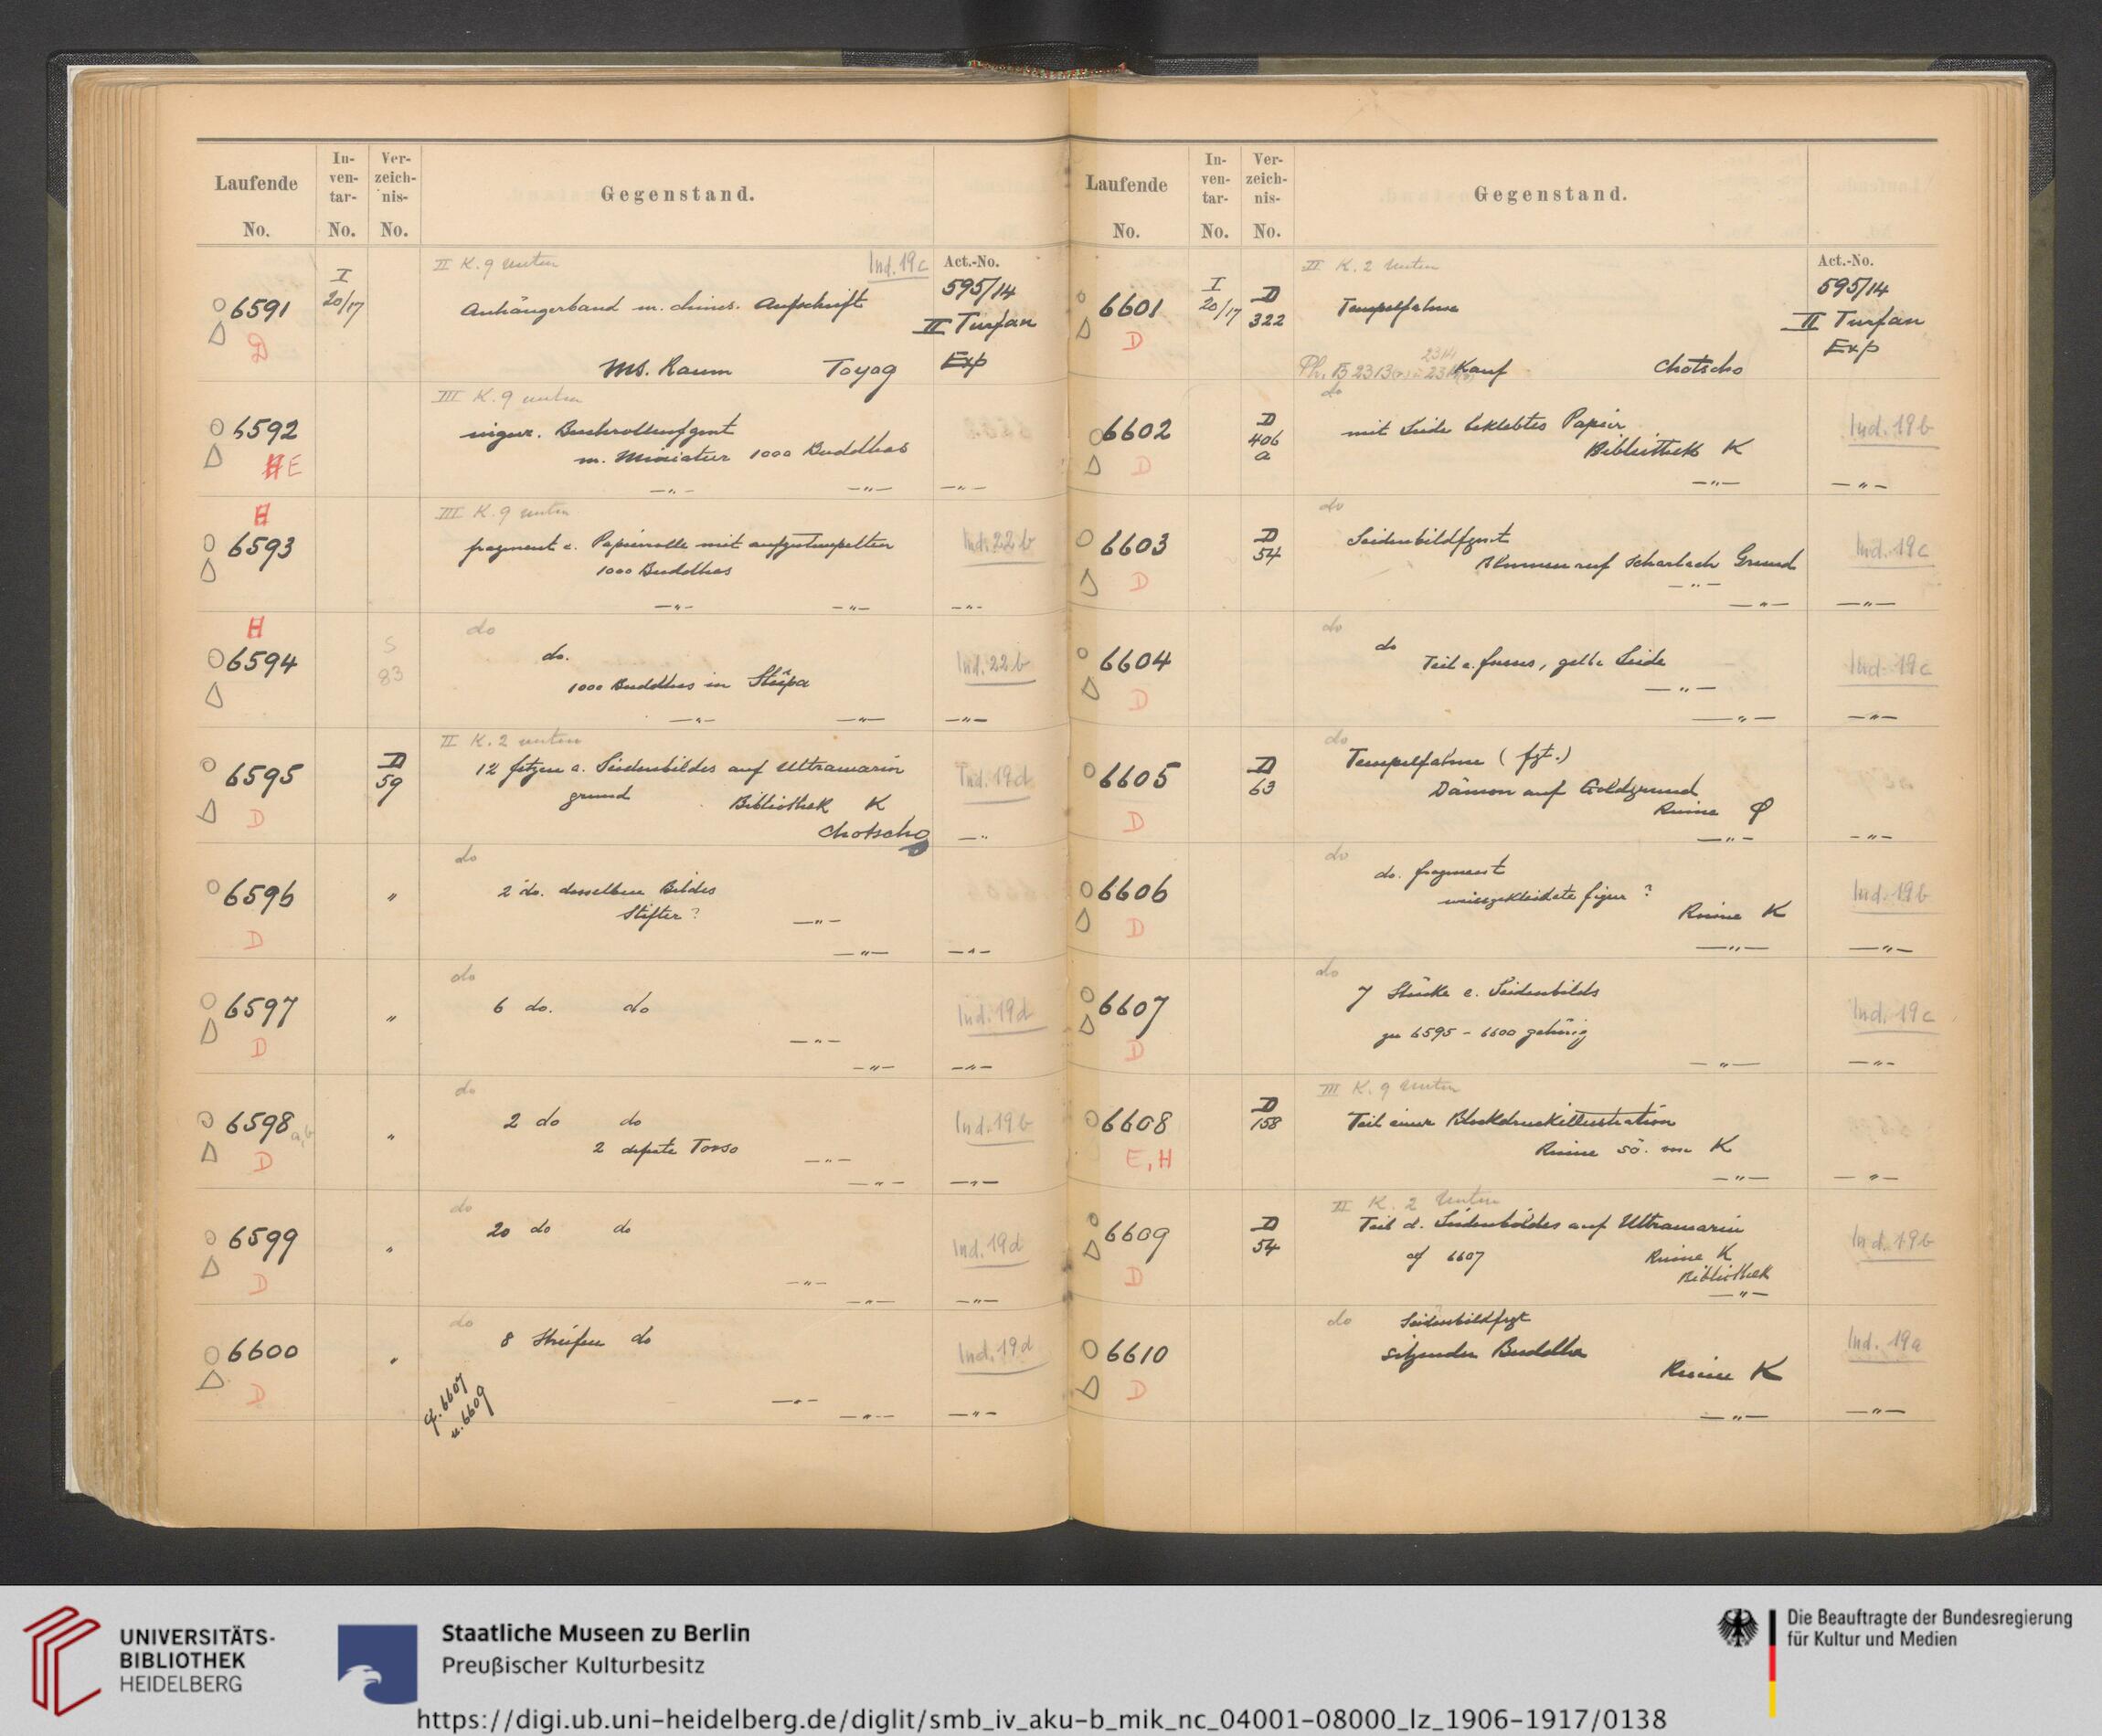 Laufende No.
In-ven-tar- No.
Ver-zeich-nis- No.
Gegenstand.
II K. 9 unten
Ind. 19c
Act.-No.
6591
I 20/17
Anhängerband m. chines. Aufschrift
595/14
II Turfan
Exp
D
Ms. Raum Toyog
III K. 9 unten
6592
uigur. Buchrollenfgmt
m. Miniatur 1000 Buddhas
E
—"— —"— —"—
H
III K. 9 unten
6593
fragment e. Papierrolle mit aufgestempelten
1000 Buddhas
Ind. 22b
—"— —"— —"—
H
do
6594
S 83
do.
1000 Buddhas in Stūpa
Ind. 22b
—"— —"— —"—
II K. 2 unten
6595
D 59
12 fetzen e. Seidenbildes auf Ultramarin
grund Bibliothek K
Ind. 19d
D
Chotscho —"
do
6596
"
2 do. desselben Bildes
Stifter? —"—
D
—"— —"—
do
6597
"
6 do. do
Ind. 19d
D
—"—
—"— —"—
do
6598 a, b
"
2 do do
2 Torso —"—
Ind. 19b
D
—"— —"—
do
6599
"
20 do do
Ind. 19d
D
—"—
—"— —"—
do
6600
"
8 Streifen do
Ind. 19d
D
cf. 6607
u. 6609
—"—
—"— —"—
Laufende No.
In-ven-tar- No.
Ver-zeich-nis- No.
Gegenstand.
II K. 2 unten
Act.-No.
6601
I 20/17
D 322
Tempelfahne
595/14
II Turfan
Exp
D
Kauf Chotscho
do
6602
D 406 a
mit Seide beklebtes Papier
Bibliothek K
Ind. 19b
D
—"— —"—
do
6603
D 54
Seidenbildfgmt
Blumen auf Scharlach Grund
Ind. 19c
D
—"—
—"— —"—
do
6604
do
Teil e. fusses, gelbe Seide
Ind. 19c
D
—"—
—"— —"—
do
6605
D 63
Tempelfahne (fgt.)
Dämon auf Goldgrund
Ruine φ
D
—"— —"—
do
6606
do. fragment
weissgekleidete figur?
Ruine K
Ind. 19b
D
—"— —"—
do
6607
7 Stücke e. Seidenbilds
zu 6595 - 6600 gehörig
Ind. 19c
D
—"— —"—
III K. 9 unten
6608
D 158
Teil einer Blockdruckillustration
Ruine sö. von K
E, H
—"— —"—
II K. 2 unten
6609
D 54
Teil d. Seidenbildes auf Ultramarin
cf 6607 Ruine K
Bibliothek
Ind. 19b
D
—"—
do
6610
Seidenbildfgt
sitzender Buddha
Ruine K
Ind. 19a
D
—"— —"—
UNIVERSITÄTS-
BIBLIOTHEK
HEIDELBERG
Staatliche Museen zu Berlin
Preußischer Kulturbesitz
Die Beauftragte der Bundesregierung
für Kultur und Medien
https://digi.ub.uni-heidelberg.de/diglit/smb_iv_aku-b_mik_nc_04001-08000_lz_1906-1917/0138